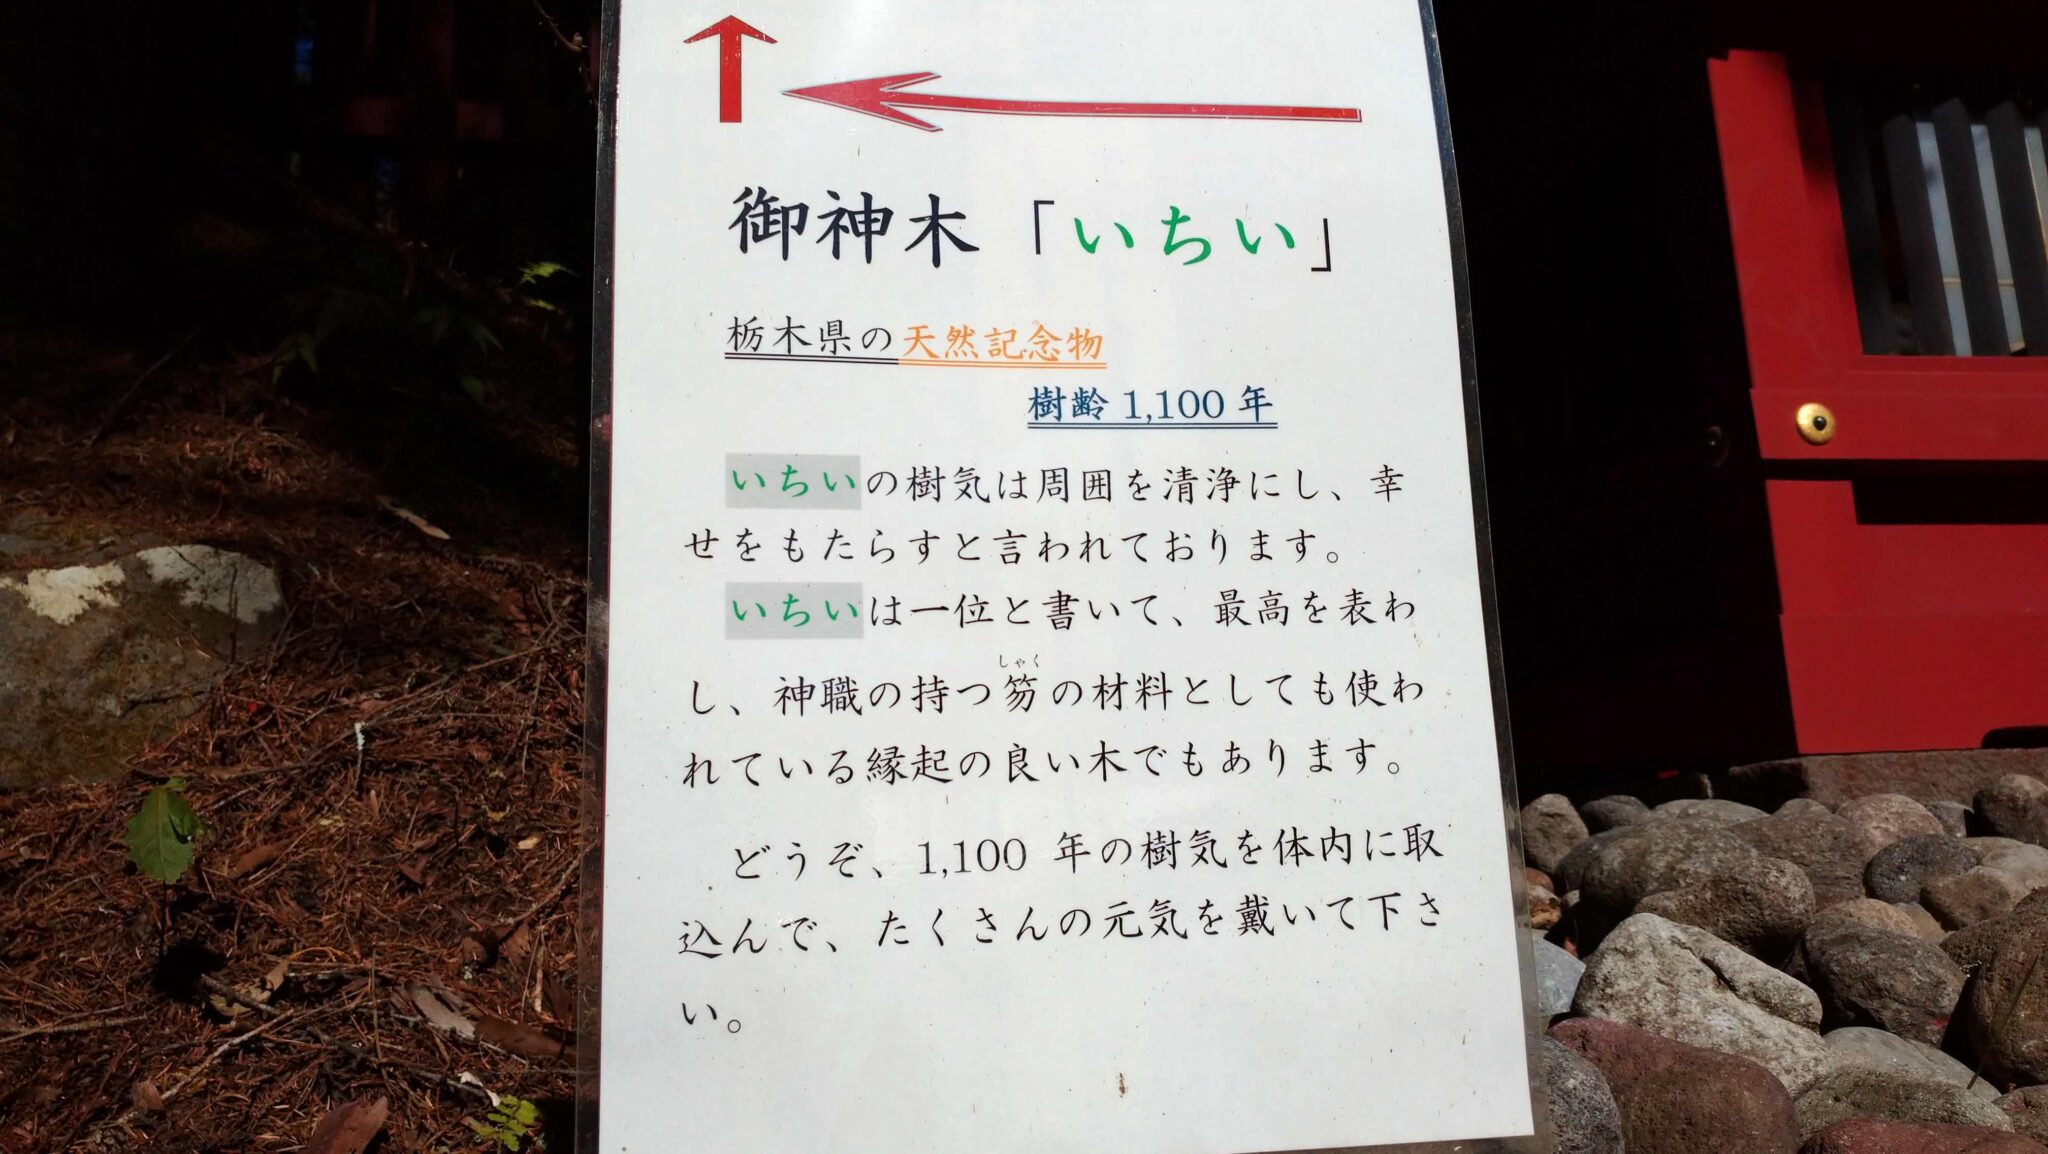 御神木「いちい」
栃木県の天然記念物
樹齢1,100年
いちいの樹気は周囲を清浄にし、幸
せをもたらすと言われております。
いちいは一位と書いて、最高を表わ
し、神職の持つ笏の材料としても使わ
しゃく
れている縁起の良い木でもあります。
どうぞ、1,100 年の樹気を体内に取
込んで、たくさんの元気を戴いて下さ
い。